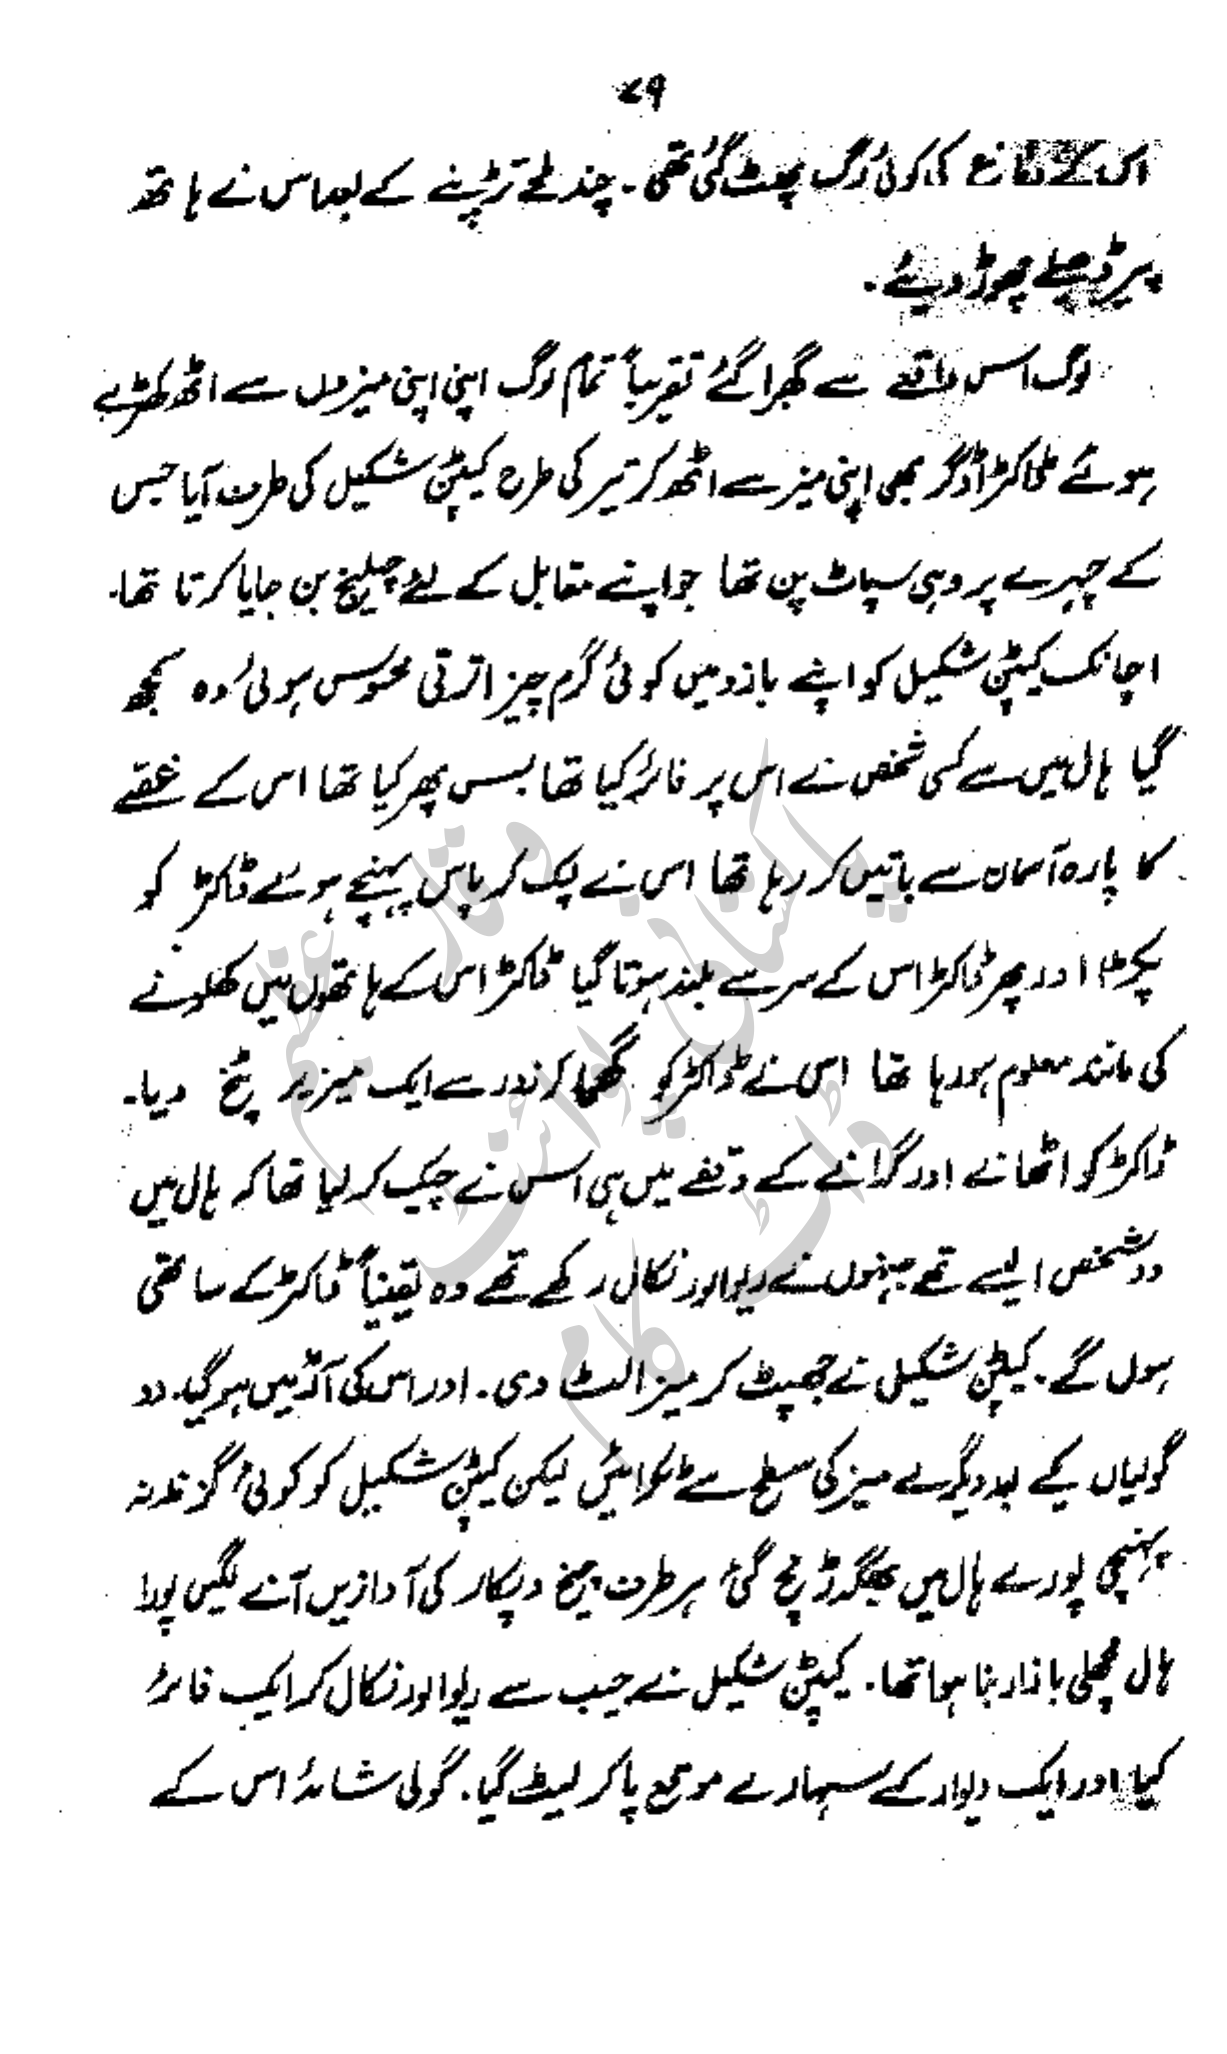 ۷۹
اس کے دماغ کی کوئی رگ پھٹ گئی تھی۔ چند لمحے تڑپنے کے بعد اس نے ہاتھ
پیر ڈھیلے چھوڑ دیئے۔
لوگ اس واقعے سے گھبرا گئے تقریباً تمام لوگ اپنی اپنی میزوں سے اٹھ کھڑے
ہوئے ڈاکٹر اڈگر بھی اپنی میز سے اٹھ کر تیر کی طرح کیپٹن شکیل کی طرف آیا جس
کے چہرے پر وہی سپاٹ پن تھا جو اپنے مقابل کے لئے چیلنج بن جایا کرتا تھا۔
اچانک کیپٹن شکیل کو اپنے بازو میں کوئی گرم چیز اترتی محسوس ہوئی وہ سمجھ
گیا ہال میں سے کسی شخص نے اس پر فائر کیا تھا بس پھر کیا تھا اس کے غصے
کا پارہ آسمان سے باتیں کر رہا تھا اس نے لپک کر پاس پہنچے ہوئے ڈاکٹر کو
پکڑا اور پھر ڈاکٹر اس کے سر سے بلند ہوتا گیا ڈاکٹر اس کے ہاتھوں میں کھلونے
کی مانند معلوم ہو رہا تھا اس نے ڈاکٹر کو گھما کر زور سے ایک میز پر پٹخ دیا۔
ڈاکٹر کو اٹھانے اور گرانے کے وقفے میں ہی اس نے چیک کر لیا تھا کہ ہال میں
دو شخص ایسے تھے جنہوں نے ریوالور نکال رکھے تھے وہ یقیناً ڈاکٹر کے ساتھی
ہوں گے۔ کیپٹن شکیل نے جھپٹ کر میز الٹ دی۔ اور اس کی آڑ میں ہو گیا۔ دو
گولیاں یکے بعد دیگرے میز کی سطح سے ٹکرائیں لیکن کیپٹن شکیل کو کوئی گزند نہ
پہنچی پورے ہال میں بھگدڑ مچ گئی ہر طرف چیخ و پکار کی آوازیں آنے لگیں پورا
ہال مچھلی بازار بنا ہوا تھا۔ کیپٹن شکیل نے جیب سے ریوالور نکال کر ایک فائر
کیا اور ایک دیوار کے سہارے موقع پا کر لیٹ گیا۔ گولی شائد اس کے
وقار عظیم
پاکستانی پوائنٹ
ڈاٹ کام